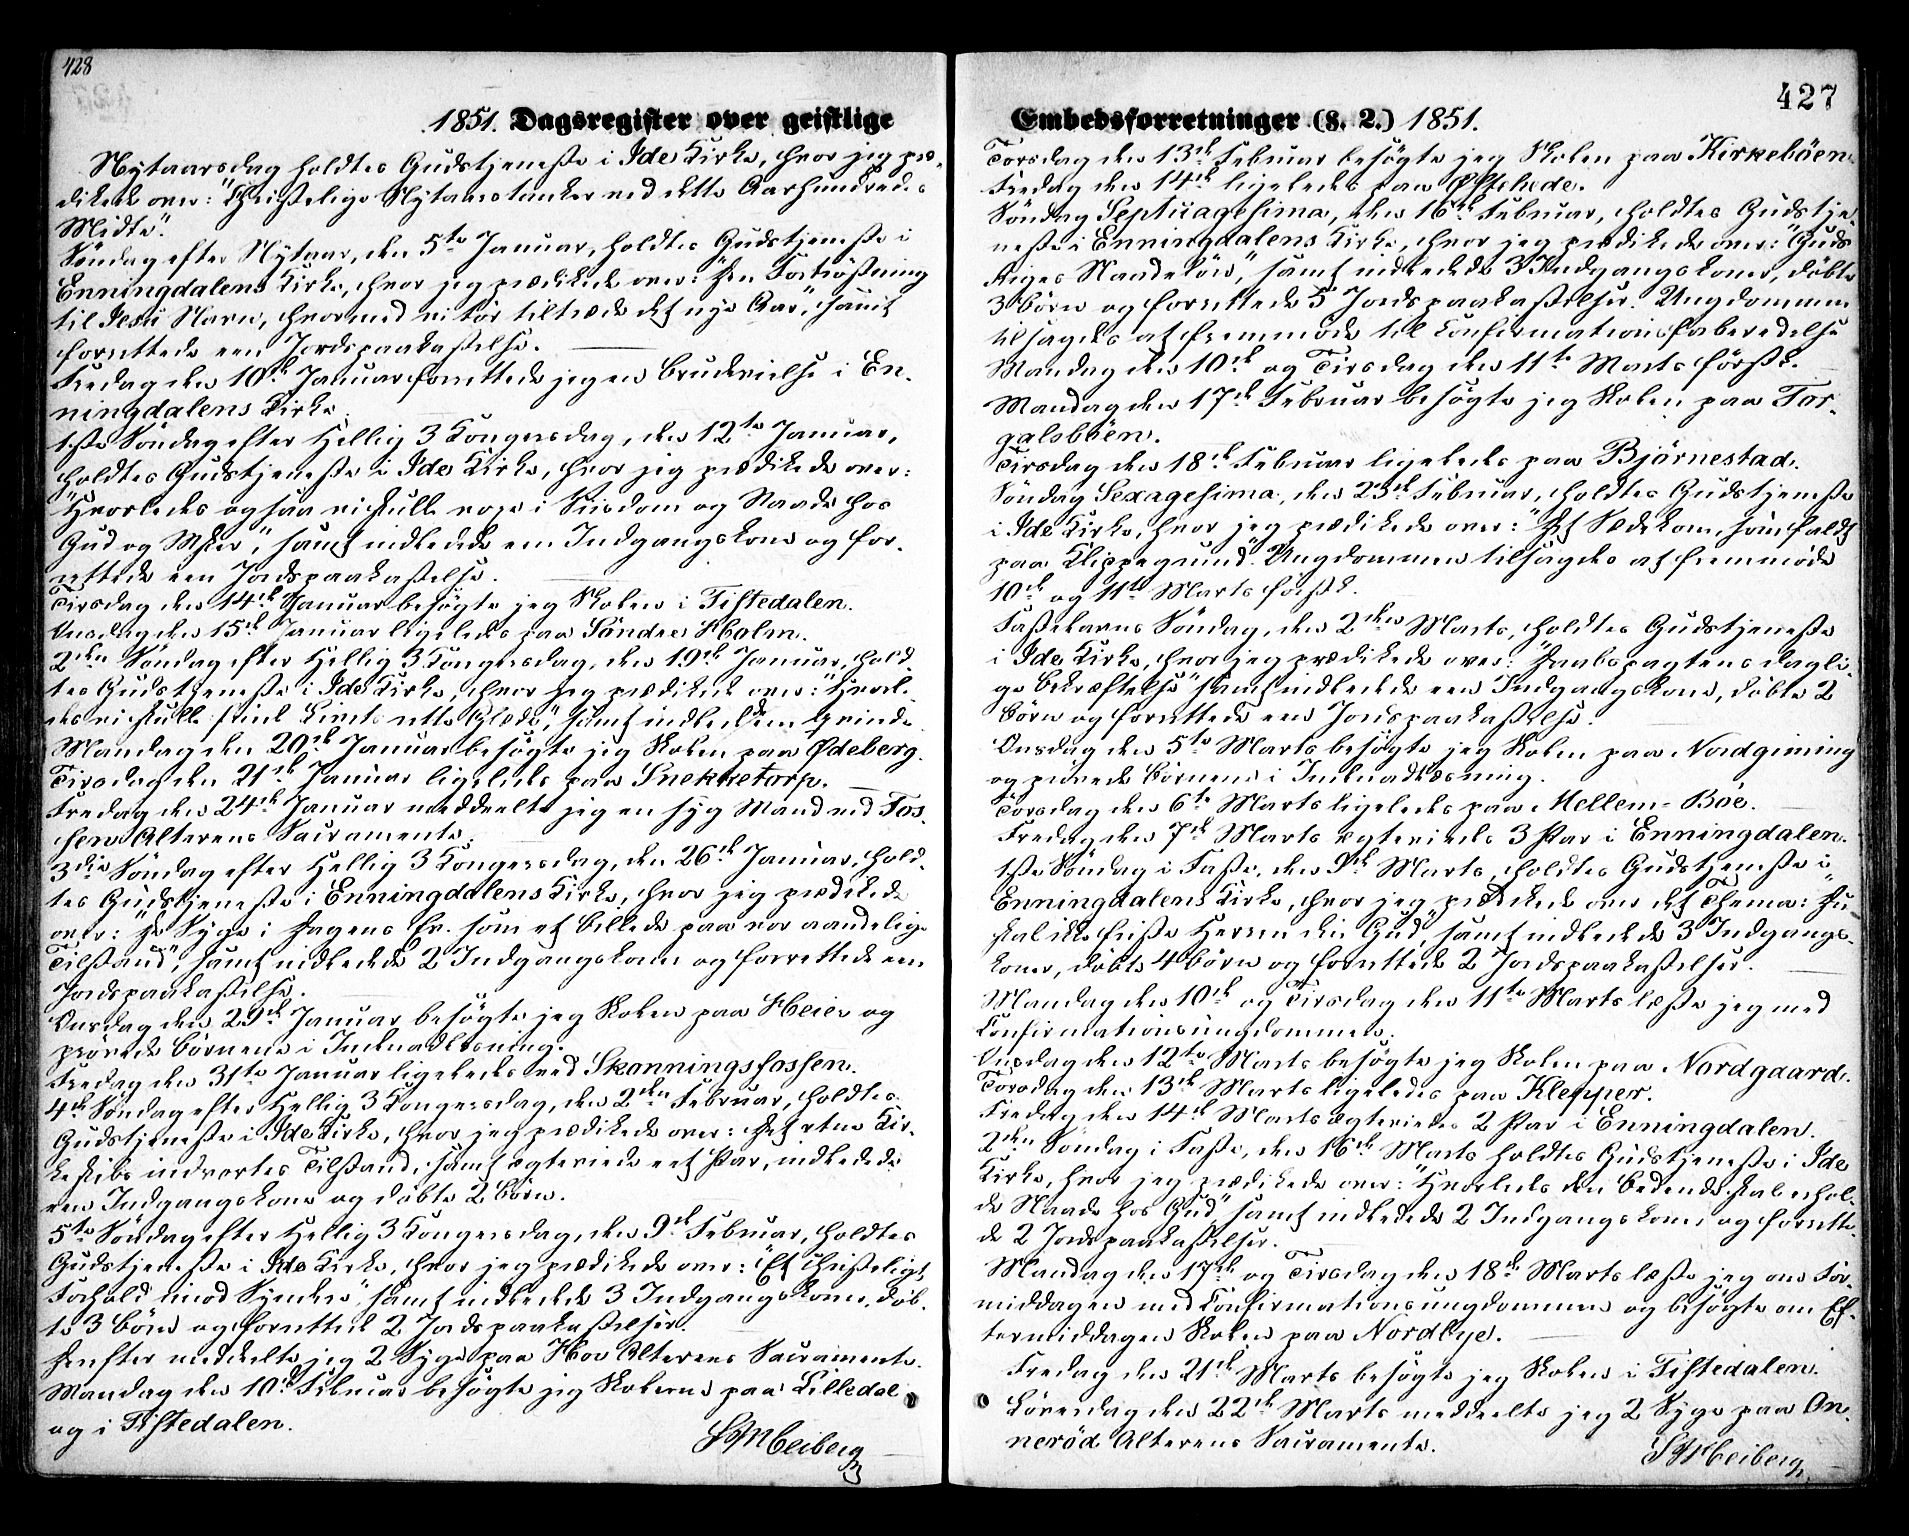 428
1851. Dagsregister over geistlige
Nytaarsdag holdtes Gudstjeneste i Ide Kirke, hvor jeg præ-
dikede over: "Christelige Nytaarstanker ved dette Aarhundredes
Midte".
Söndag efter Nytaar, den 5te Januar, holdtes Gudstjeneste i
Enningdalens Kirke, hvor jeg prædikede over: "Den Fortröstning
til Jesu Navn, hvormed vi tör tiltræde det nye Aar", samt
forrettede een Jordspaakastelse.
Fredag den 10de Januar forrettede jeg en Brudevielse i En-
ningdalens Kirke.
1ste Söndag efter Hellig 3 Kongersdag, den 12te Januar,
holdtes Gudstjeneste i Ide Kirke, hvor jeg prædikede over:
"Hvorledes ogsaa vi skulle voxe i Viisdom og Naade hos
Gud og Msker", samt indledede een Indgangskone og for-
rettede een Jordspaakastelse.
Tirsdag den 14de Januar besögte jeg Skolen i Tistedalen.
Onsdag den 15de Januar ligeledes paa Söndre Holm.
2den Söndag efter Hellig 3 Kongersdag, den 19de Januar, hold-
tes Gudstjeneste i Ide Kirke, hvor jeg prædikede over: "Hvorle-
des vi skulle finde Livets rette Glæde", samt indledede en Qvinde.
Mandag den 20de Januar besögte jeg Skolen paa Ødeberg.
Tirsdag den 21de Januar ligeledes paa Snekketorp.
Fredag den 24de Januar meddeelte jeg en syg Mand ved Fos-
sen Alterens Sacramente.
3die Söndag efter Hellig 3 Kongersdag, den 26de Januar, hold-
tes Gudstjeneste i Enningdalens Kirke, hvor jeg prædikede
over: "De Syge i Dagens Ev. som et Billede paa vor aandelige
Tilstand", samt indledede 2 Indgangskoner og forrettede een
Jordspaakastelse.
Onsdag den 29de Januar besögte jeg Skolen paa Heier og
prövede Börnene i Indenadlæsning.
Fredag den 31te Januar ligeledes ved Skanningsfossen.
4de Söndag efter Hellig 3 Kongersdag, den 2den Februar, holdtes
Gudstjeneste i Ide Kirke, hvor jeg prædikede over: Det rette Kir-
keskibs indvortes Tilstand, samt ægteviede eet Par, indledede
een Indgangskone og döbte 2 Börn.
5te Söndag efter Hellig 3 Kongersdag, den 9de Februar, holdtes
Gudstjeneste i Ide Kirke, hvor jeg prædikede over: "Et christeligt
Forhold imod Syndere", samt indledede 3 Indgangskoner, döb-
te 3 Börn og forrettede 2 Jordspaakastelser.
Derefter meddeelte jeg 2 Syge paa Hov Alterens Sacramente.
Mandag den 10de Februar besögte jeg Skolerne paa Lilledal
og i Tistedalen.
Heiberg
427
Embedsforretninger (§. 2.) 1851.
Torsdag den 13de Februar besögte jeg Skolen paa Kirkeböen.
Fredag den 14de ligeledes paa Ystehede.
Söndag Septuagesima, den 16de Februar, holdtes Gudstje-
neste i Enningdalens Kirke, hvor jeg prædikede over: "Guds
Riges Naadelön", samt indledede 3 Indgangskoner, döbte
3 Börn og forrettede 5 Jordspaakastelser. Ungdommen
tilsagdes at fremmöde til Confirmationsforberedelse
Mandag den 10de og Tirsdag den 11te Marts förstk.
Mandag den 17de Februar besögte jeg Skolen paa Tor-
galsböen.
Tirsdag den 18de Februar ligeledes paa Björnestad.
Söndag Sexagesima, den 23de Februar, holdtes Gudstjeneste
i Ide Kirke, hvor jeg prædikede over: "Det Sædekorn, som faldt
paa Klippegrund". Ungdommen tilsagdes at fremmöde
10de og 11te Marts förstk.
Fastelavns Söndag, den 2den Marts, holdtes Gudstjeneste
i Ide Kirke, hvor jeg prædikede over: "Daabspagtens dagli-
ge Bekræftelse" samt indledede een Indgangskone, döbte 2
Börn og forrettede een Jordspaakastelse.
Onsdag den 5te Marts besögte jeg Skolen paa Nordgiming
og prövede Börnene i Indenadlæsning.
Torsdag den 6te Marts ligeledes paa Mellem-Böe.
Fredag den 7de Marts ægteviedes 3 Par i Enningdalen.
1ste Söndag i Faste, den 9de Marts, holdtes Gudstjeneste i
Enningdalens Kirke, hvor jeg prædikede over det Thema: "Du
skal ikke friste Herren din Gud", samt indledede 3 Indgangs-
koner, döbte 4 Börn og forrettede 2 Jordspaakastelser.
Mandag den 10de og Tirsdag den 11te Marts læste jeg med
Confirmationsungdommen.
Onsdag den 12te Marts besögte jeg Skolen paa Nordgaard.
Torsdag den 13de Marts ligeledes paa Klepper.
Fredag den 14de Marts ægteviedes 2 Par i Enningdalen.
2den Söndag i Faste, den 16de Marts holdtes Gudstjeneste i Ide
Kirke, hvor jeg prædikede over: "Hvorledes den Bedende skal erhol-
de Naade hos Gud" samt indledede 2 Indgangskoner og forrette-
de 2 Jordspaakastelser.
Mandag den 17de og Tirsdag den 18de Marts læste jeg om For-
middagen med Confirmationsungdommen og besögte om Ef-
termiddagen Skolen paa Nordlye.
Fredag den 21de Marts besögte jeg Skolen i Tistedalen.
Löverdag den 22de Marts meddeelte jeg 2 Syge paa On-
neröd Alterens Sacramente.
Heiberg